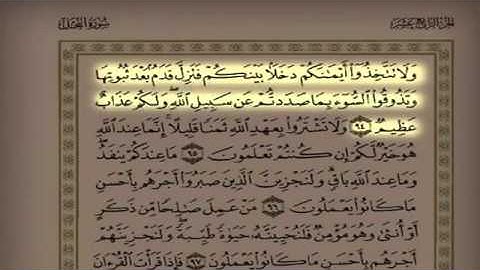 الجزء الرابع عشر
سورة النحل
وَلَا تَتَّخِذُوٓا۟ أَيْمَـٰنَكُمْ دَخَلًۢا بَيْنَكُمْ فَتَزِلَّ قَدَمٌۢ بَعْدَ ثُبُوتِهَا
وَتَذُوقُوا۟ ٱلسُّوٓءَ بِمَا صَدَدتُّمْ عَن سَبِيلِ ٱللَّهِ ۖ وَلَكُمْ عَذَابٌ
عَظِيمٌ ٩٤ وَلَا تَشْتَرُوا۟ بِعَهْدِ ٱللَّهِ ثَمَنًا قَلِيلًا ۚ إِنَّمَا عِندَ ٱللَّهِ
هُوَ خَيْرٌ لَّكُمْ إِن كُنتُمْ تَعْلَمُونَ ٩٥ مَا عِندَكُمْ يَنفَدُ ۖ
وَمَا عِندَ ٱللَّهِ بَاقٍ ۗ وَلَنَجْزِيَنَّ ٱلَّذِينَ صَبَرُوٓا۟ أَجْرَهُم بِأَحْسَنِ
مَا كَانُوا۟ يَعْمَلُونَ ٩٦ مَنْ عَمِلَ صَـٰلِحًا مِّن ذَكَرٍ
أَوْ أُنثَىٰ وَهُوَ مُؤْمِنٌ فَلَنُحْيِيَنَّهُۥ حَيَوٰةً طَيِّبَةً ۖ وَلَنَجْزِيَنَّهُمْ
أَجْرَهُم بِأَحْسَنِ مَا كَانُوا۟ يَعْمَلُونَ ٩٧ فَإِذَا قَرَأْتَ ٱلْقُرْءَانَ